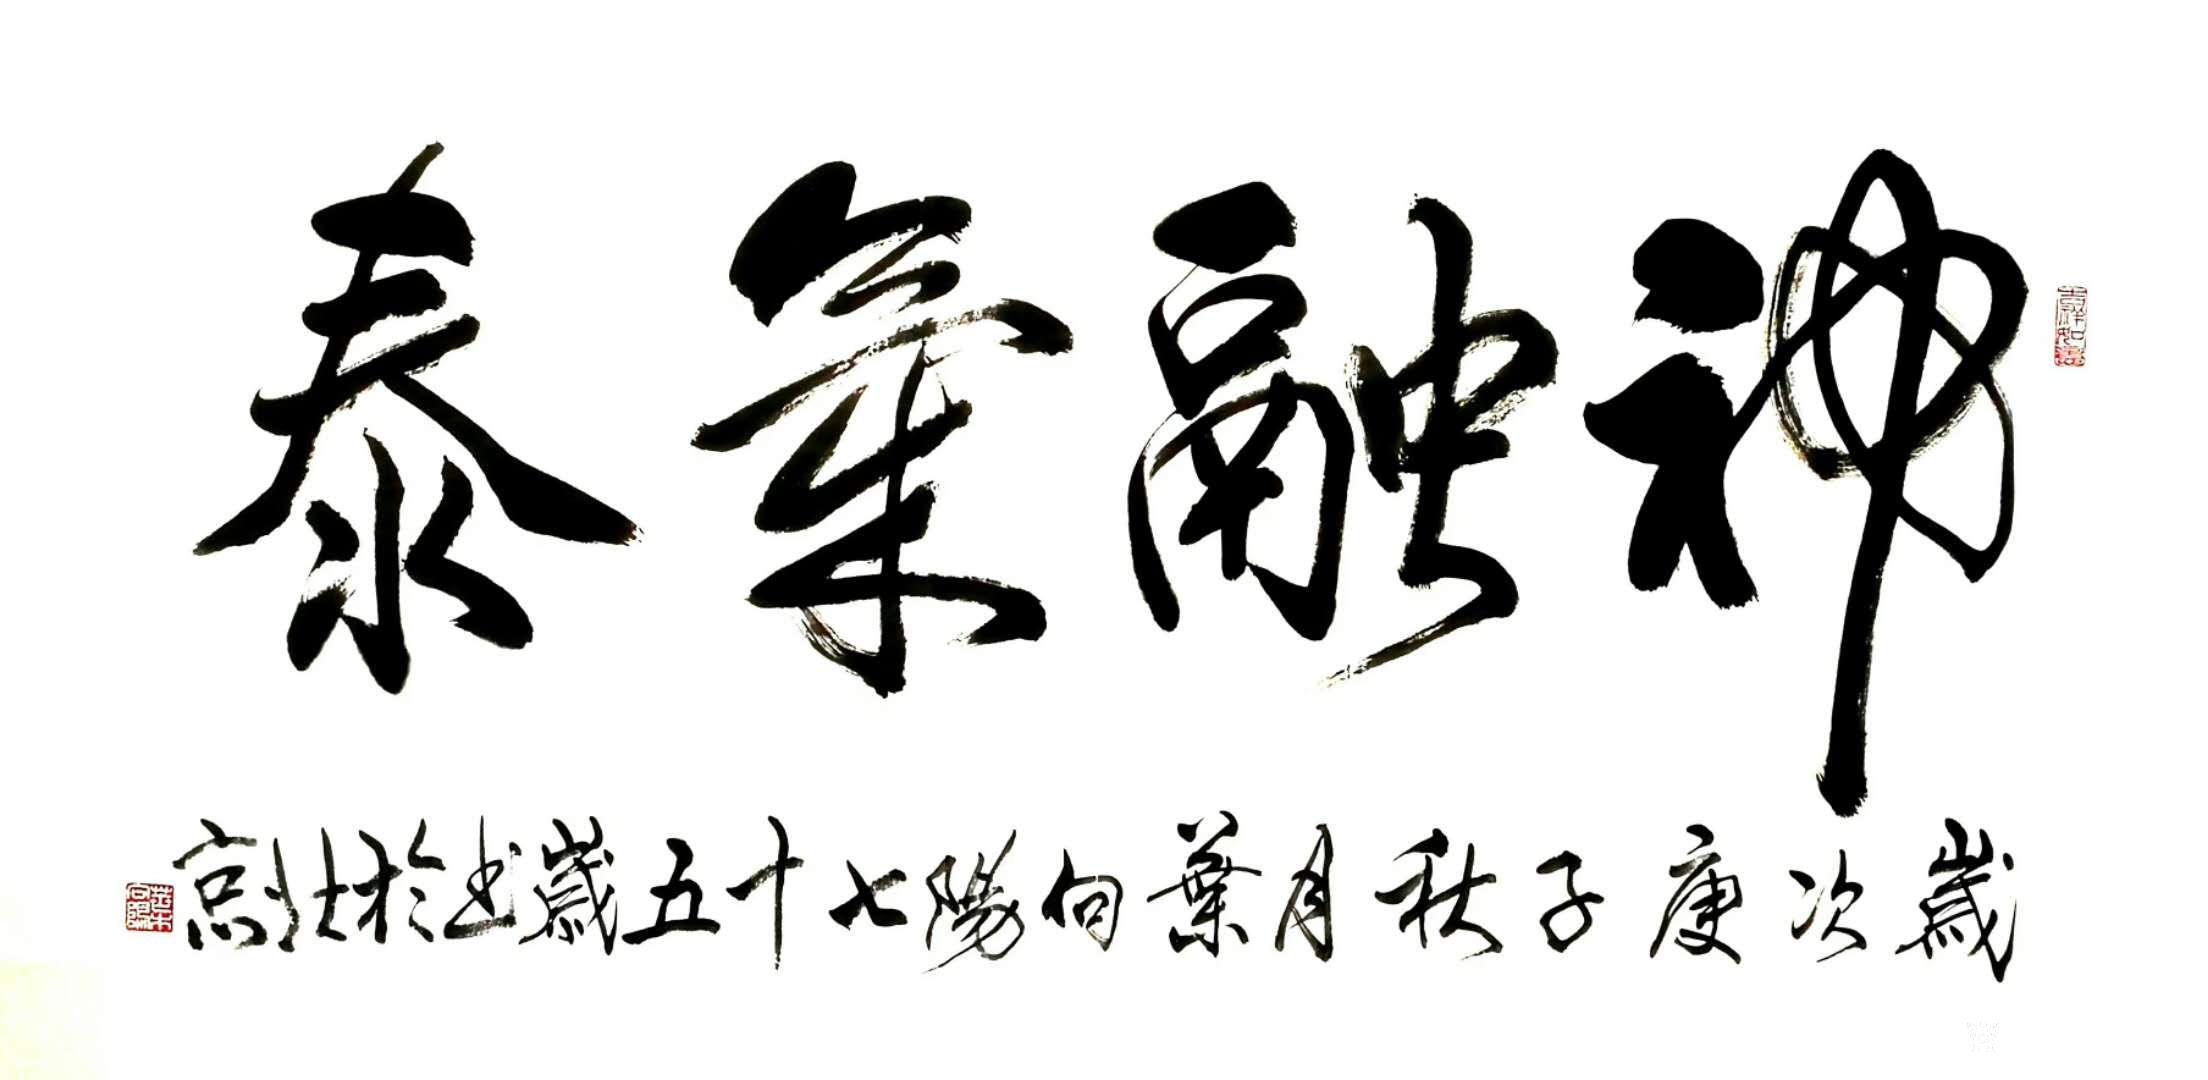 吉祥如意
神融氣泰
歲次庚子秋月葉向陽七十五歲书於北京